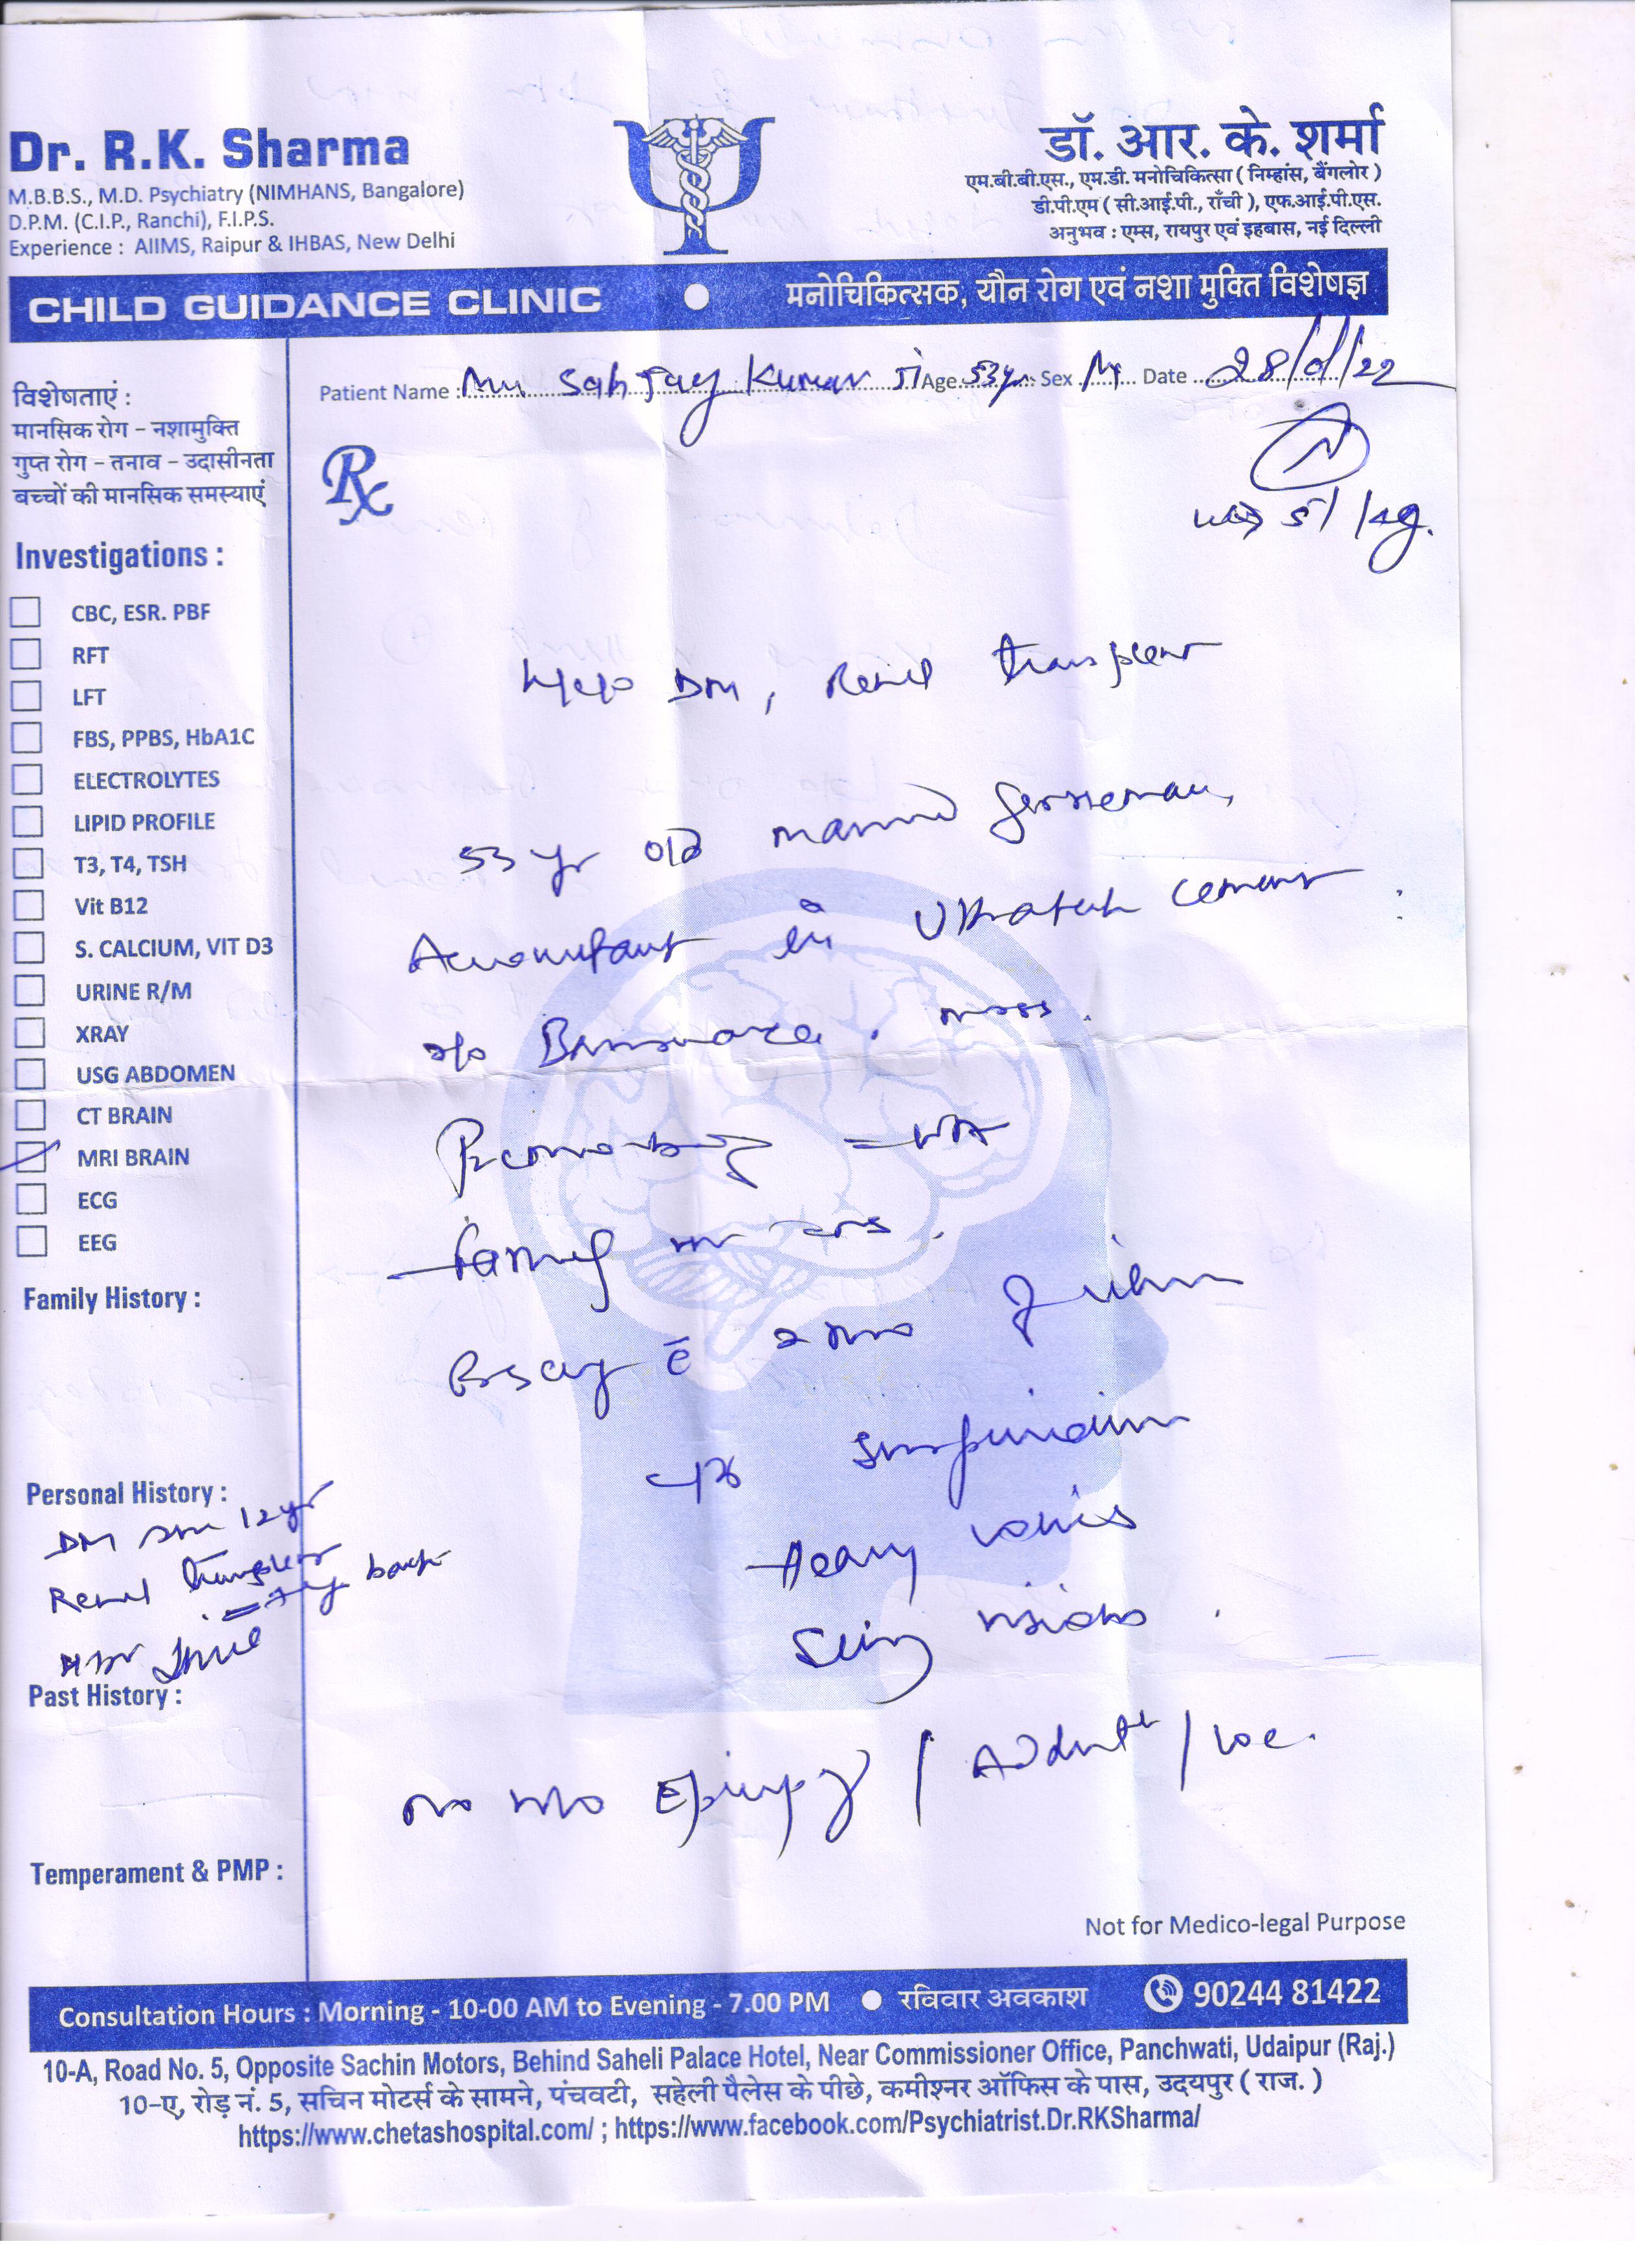 Dr. R.K. Sharma
M.B.B.S., M.D. Psychiatry (NIMHANS, Bangalore)
D.P.M. (C.I.P., Ranchi), F.I.P.S.
Experience : AIIMS, Raipur & IHBAS, New Delhi
डॉ. आर. के. शर्मा
एम.बी.बी.एस., एम.डी. मनोचिकित्सा ( निम्हांस, बैंगलोर )
डी.पी.एम ( सी.आई.पी., राँची ), एफ.आई.पी.एस.
अनुभव : एम्स, रायपुर एवं इहबास, नई दिल्ली
CHILD GUIDANCE CLINIC ● मनोचिकित्सक, यौन रोग एवं नशा मुक्ति विशेषज्ञ
Patient Name : Mr. Kumar Age 53yr Sex M Date 28/ /22
विशेषताएं :
मानसिक रोग – नशामुक्ति
गुप्त रोग – तनाव – उदासीनता
बच्चों की मानसिक समस्याएं
Rx
51 kg.
Investigations :
CBC, ESR. PBF
RFT
LFT
FBS, PPBS, HbA1C
ELECTROLYTES
LIPID PROFILE
T3, T4, TSH
Vit B12
S. CALCIUM, VIT D3
URINE R/M
XRAY
USG ABDOMEN
CT BRAIN
MRI BRAIN
ECG
EEG
Family History :
Personal History :
DM 12 yr
Renal transplant
Past History :
Temperament & PMP :
DM, Renal transplant
53 yr old married gentleman,
Accountant in Ultratech cement
r/o Banswara.
Family
suspicion
Hearing voices
Seeing visions
No h/o Epilepsy / / LOC.
Not for Medico-legal Purpose
Consultation Hours : Morning - 10-00 AM to Evening - 7.00 PM ● रविवार अवकाश 90244 81422
10-A, Road No. 5, Opposite Sachin Motors, Behind Saheli Palace Hotel, Near Commissioner Office, Panchwati, Udaipur (Raj.)
10-ए, रोड़ नं. 5, सचिन मोटर्स के सामने, पंचवटी, सहेली पैलेस के पीछे, कमीश्नर ऑफिस के पास, उदयपुर ( राज. )
https://www.chetashospital.com/ ; https://www.facebook.com/Psychiatrist.Dr.RKSharma/